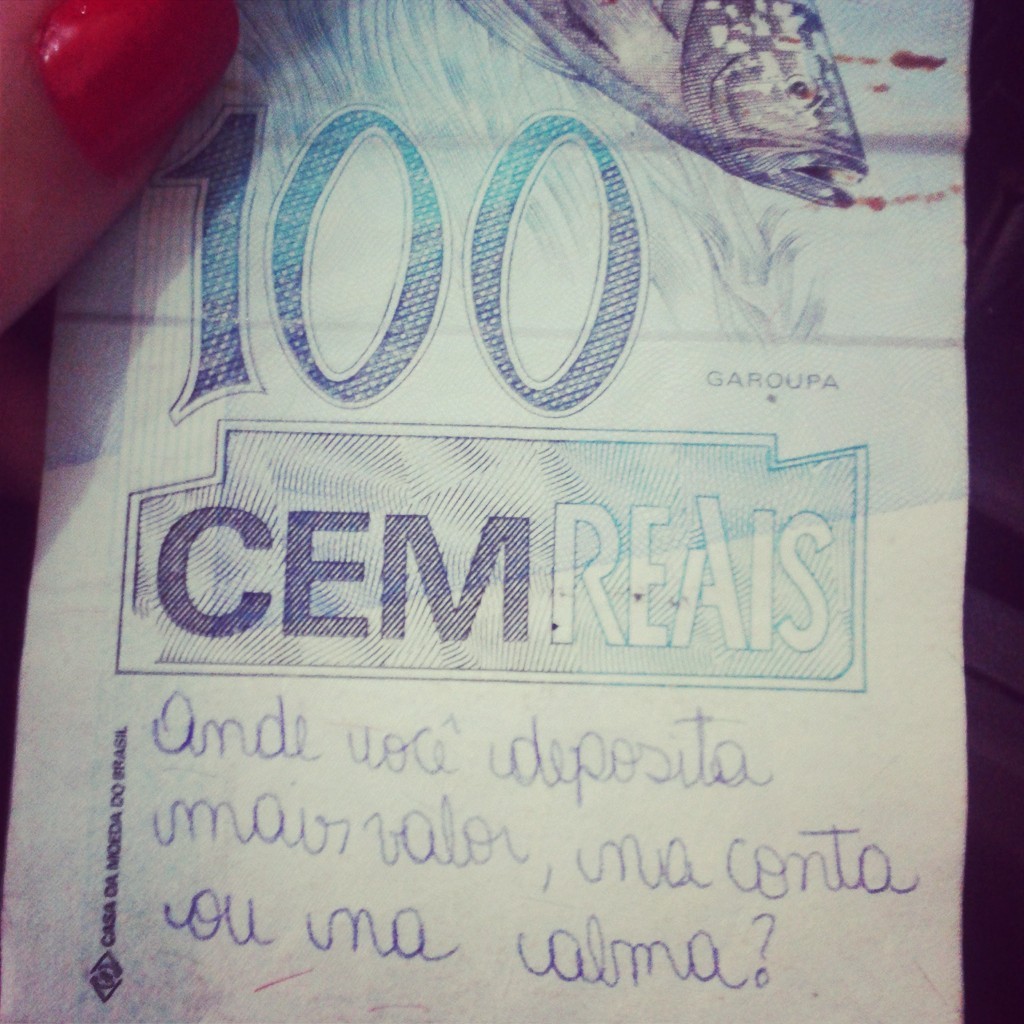 100
GAROUPA
CEM REAIS
Onde você deposita
mais valor, na conta
ou na alma?
CASA DA MOEDA DO BRASIL